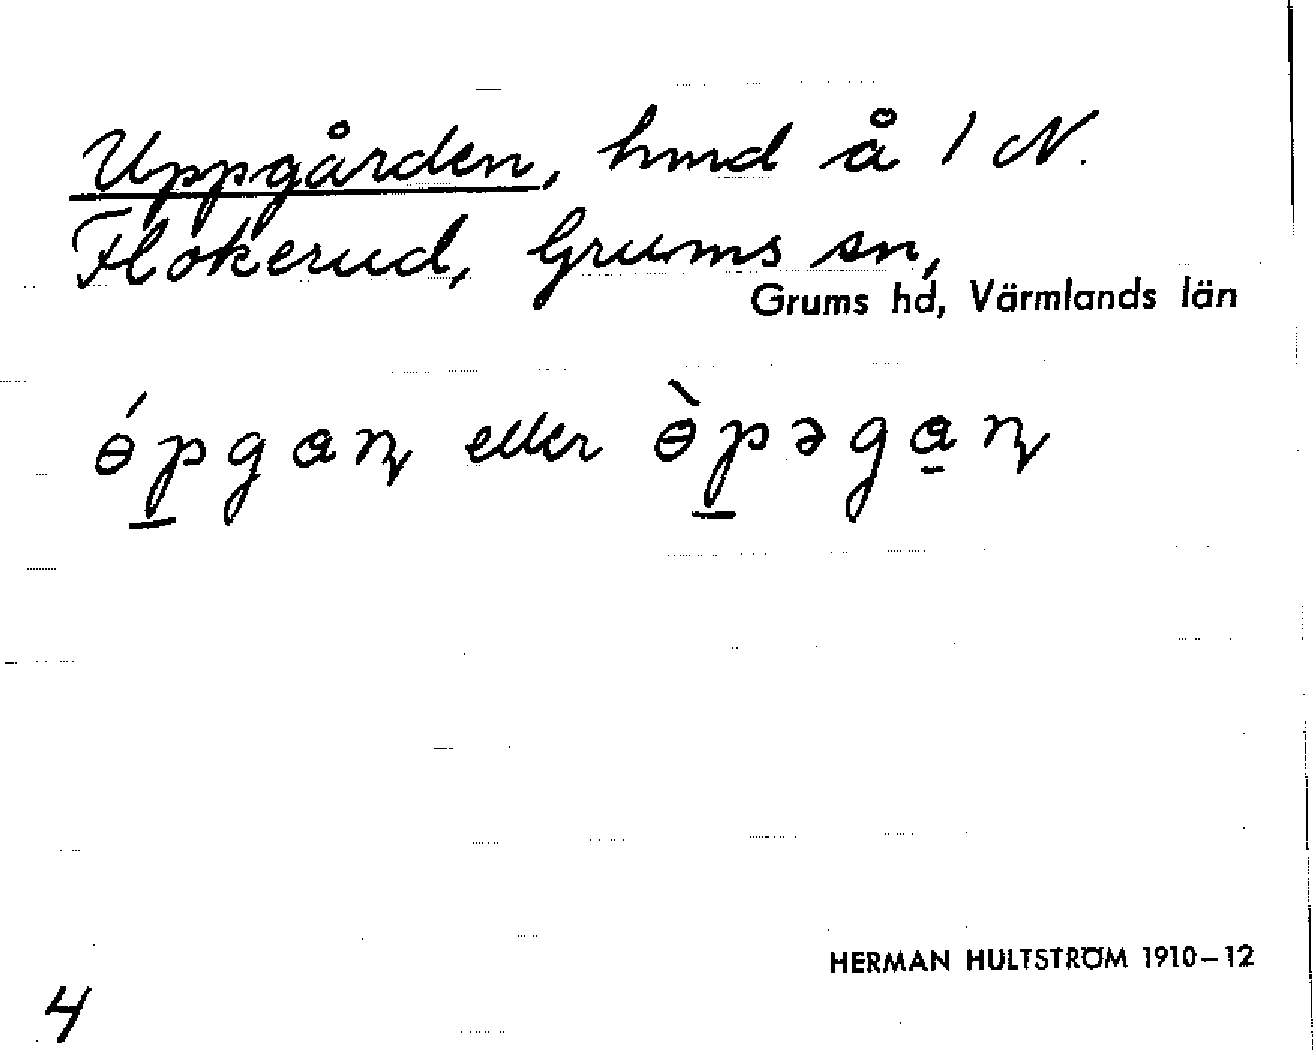 Uppgården, hmd å 1 N.
Flokerud, Grums sn,
Grums hd, Värmlands län
ɵ́p̲gaɳ eller ɵ̀p̲əga̲ɳ
HERMAN HULTSTRÖM 1910–12
4